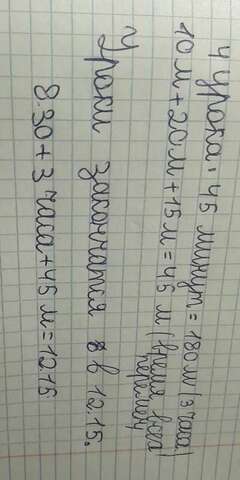 4 урока · 45 минут = 180 м (3 часа)
10 м + 20 м + 15 м = 45 м (время всех
перемен)
Уроки закончатся в в 12.15.
8.30 + 3 часа + 45 м = 12 15